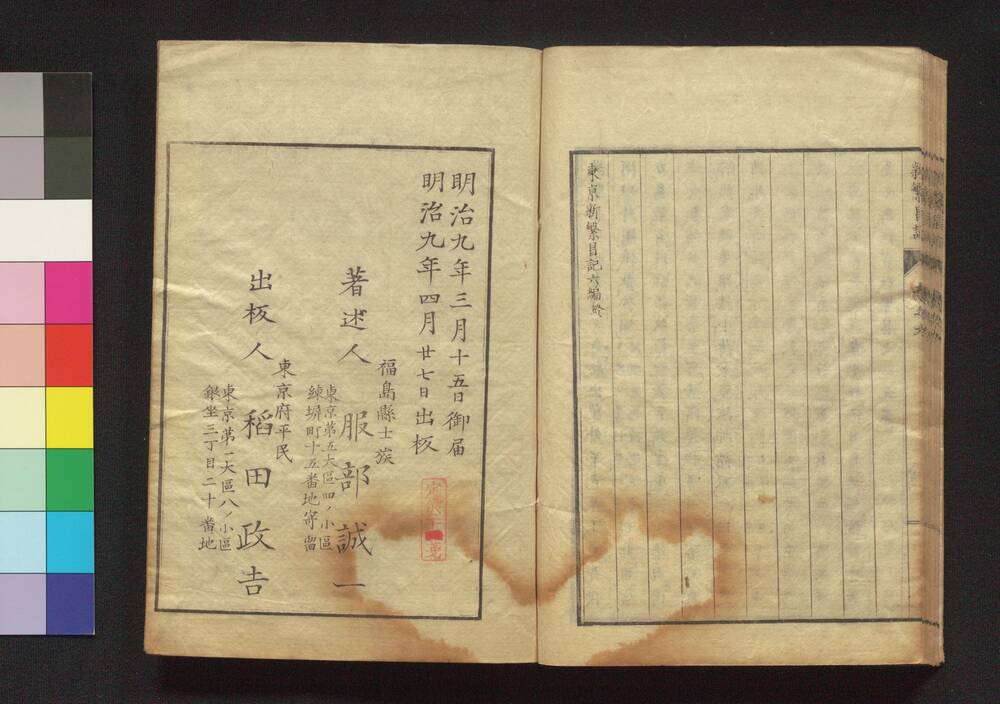 東京新繁昌記六編終
明治九年三月十五日御届
明治九年四月廿七日出板
福島縣士族
著述人 服部誠一
東京第五大區四ノ小區
練塀町十五番地寄留
東京府平民
出板人 稻田政吉
東京第一大區八ノ小區
銀坐三丁目二十番地